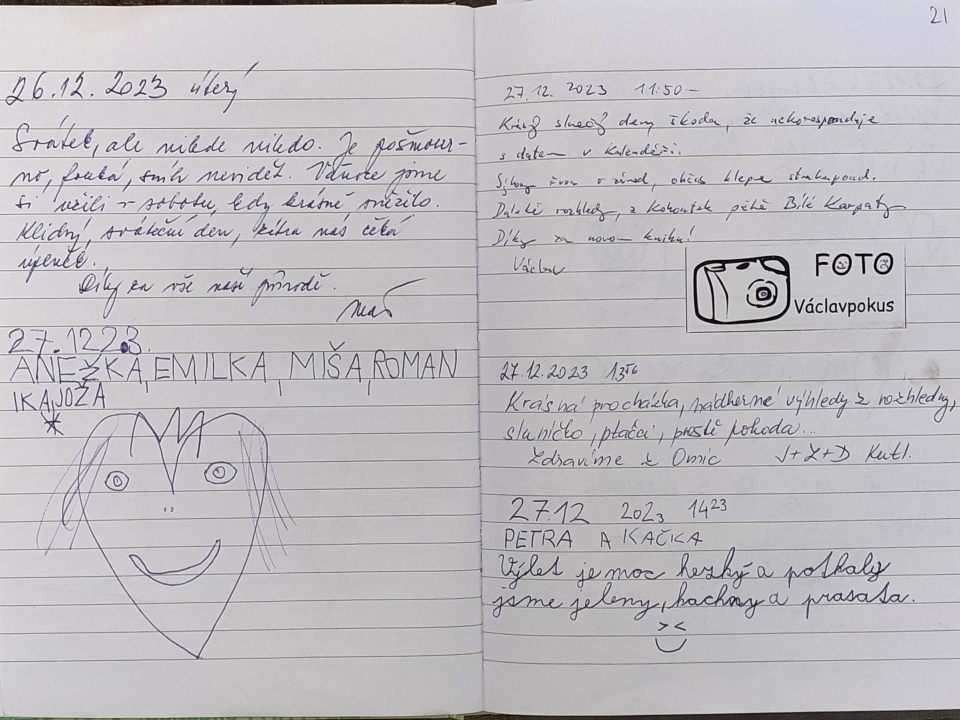 26.12.2023 úterý
Svátek, ale nikde nikdo. Je pošmour-
no, fouká, sníh nevidět. Vánoce jsme
si užili v sobotu, kdy krásně sněžilo.
Klidný, sváteční den, zítra nás čeká
úpěněk.
Díky za vše naší přírodě.
27.12.23.
ANEŽKA, EMILKA, MIŠA, ROMAN
IKA, JOŽA
21
27.12.2023 11:50-
Krásný sluneč deny škoda, že nekoresponduje
s datem v kalendáři.
v závod, občas klepe strakapoud.
Daleké rozhledy, z Kohoutek pěkně Bílé Karpaty
Díky za novou knihu!
Václav
FOTO
Václavpokus
27.12.2023 13 56
Krásná procházka, nádherné výhledy z rozhledny,
sluníčko, ptáčci, prostě pohoda...
Zdravíme z Omic J+Z+D Kutl.
27.12 2023 14 23
PETRA A KAČKA
Výlet je moc hezký a potkaly
jsme jeleny, kachny a prasata.